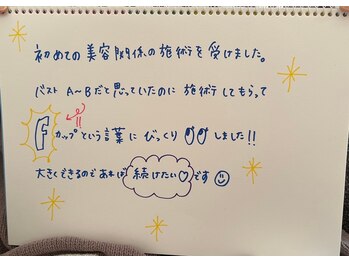 初めての美容関係の施術を受けました。
バスト A〜Bだと思っていたのに 施術してもらって
Fカップという言葉にびっくりしました!!
大きくできるのであれば 続けたい♡です